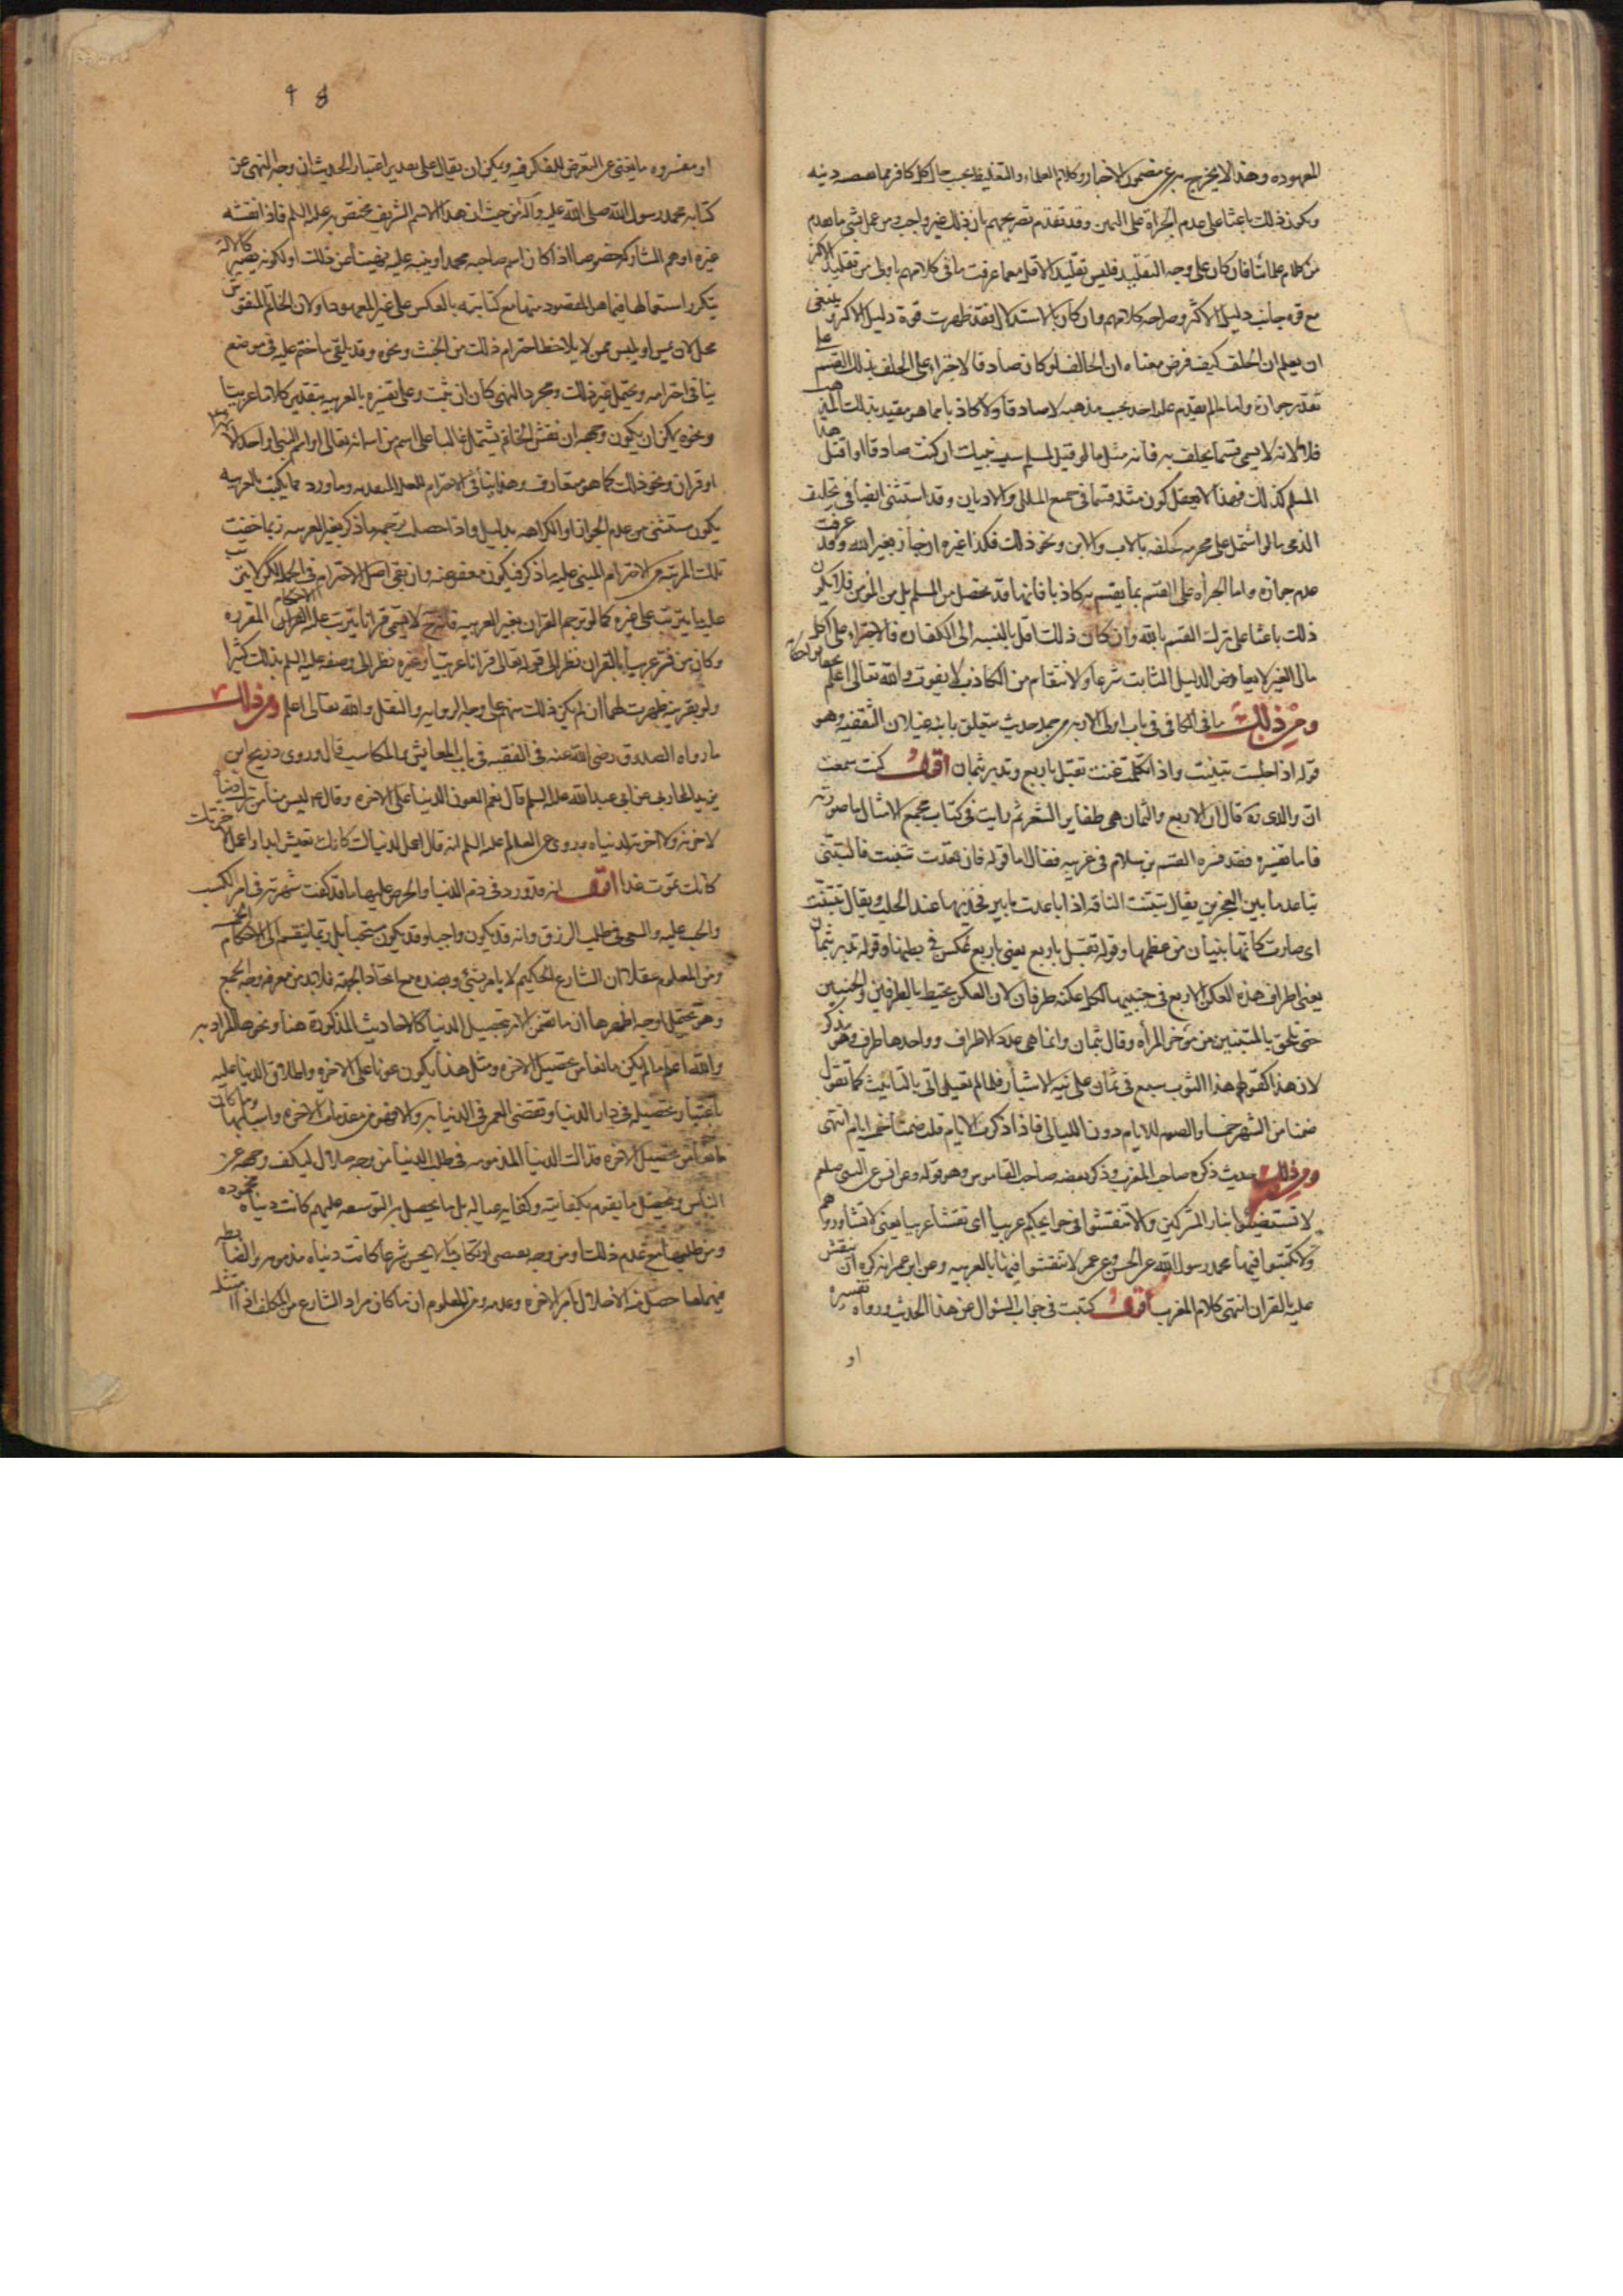 المعهوده وهذا لا يخرج به عن مضمون الاخبار وكلام العلماء والتغليظ بحسب حال كل كافر مما يعتقده دينه
ويكون ذلك باعثا على عدم الجراة على اليمين وقد تقدم تصريحهم بان ذلك غير واجب ومن عمل بشئ ما تقدم
من كلام علمائنا فان كان على وجه التقليد فليس تقليد الاقل مما عرفت ما في كلامهم باولى من تقليد الاكثر
مع قوه جانب دليل الاكثر وصراحه كلامهم وان كان بالاستدلال فقد ظهرت قوة دليل الاكثر وينبغى
ان يعلم ان الحلف كيف فرض معناه ان الحالف لو كان صادقا لا يجتراء على الحلف بذلك القسم على
تقدير جوازه واما ما لم يقدم عليه احد بحسب مذهبه لا صادقا ولا كاذبا مما هو مقيد بذلك المذهب
فلا لانه لا يسمى قسما يحلف به فانه مثل ما لو قيل لمسلم سب نبيك ان كنت صادقا او اقتل هذا
المسلم كذلك فهذا لا يعقل كون مثله قسما في جميع الملل والاديان وقد استثنى ايضا في تحليف
الذمى ما لو اشتمل على محرم كحلفه بالاب والابن ونحو ذلك فكذا غيره ان جاز بغير الله وقد عرفت
عدم جوازه واما الجراه على القسم بما يقسم به كاذبا فانها قد تحصل من المسلم بل من المؤمن فلا يكون
ذلك باعثا على ترك القسم بالله وان كان ذلك اقل بالنسبه الى الكفار فالاجتراء على اكل
مال الغير لا يعارض الدليل الثابت شرعا والانتقام من الكاذب لا يفوت والله تعالى اعلم
ومن ذلك ما في الكافي في باب اولى الاربه من جمله حديث يتعلق بابنه غيلان الثقفيه وهو
قوله اذا جلست تبنيت واذا تكلمت غنت تقبل باربع وتدبر بثمان اقول كنت سمعت
ان والدى ره قال ان الاربع والثمان هى ظفاير الشعر ثم رايت في كتاب مجمع الامثال ما صورته
فاما تفسيره فقد فسره القسم بن سلام في غريبه فقال اما قوله فان قعدت تبنت فالتبنى
تباعد ما بين الفخذين يقال تبنت الناقه اذا باعدت ما بين فخذيها عند الحلب ويقال تبنت
اى صارت كانها بنيان من عظمها وقوله تقبل باربع يعنى باربع عكن في بطنها وقوله تدبر بثمان
يعنى اطراف هذه العكن الاربع في جنبيها لكل عكنه طرفان لان العكن تحيط بالطرفين والجنبين
حتى تلحق بالمتنين من مؤخر المرأه وقال بثمان وانما هى عدد الاطراف وواحدها طرف وهو مذكر
لان هذا كقولهم هذا الثوب سبع في ثمان على نيه الاشبار فلما لم يقل اتى بالتانيث كما تقول
صمنا من الشهر خمسا والصوم للايام دون الليالى فاذا ذكرت الايام قلت صمنا خمسه ايام انتهى
ومن ذلك حديث ذكره صاحب المغرب وذكر بعضه صاحب القاموس وهو قوله وعن انس عن النبى صلعم
لا تستضيئوا بنار المشركين ولا تنقشوا في خواتيمكم عربيا اى نقشا عربيا يعنى لا تشاوروهم
ولا تكتبوا فيها محمد رسول الله وعن الحسن وعن عمر لا تنقشوا فيها بالعربيه وعن ابن عمر انه كره ان ينقش
عليه بالقران انتهى كلام المغرب اقول كتبت في جواب السؤال عن هذا الحديث ورواه تفسيره
او
او مفسروه ما يغنى عن التعرض للفكر فيه ويمكن ان يقال على تقدير اعتبار الحديث ان وجه النهى عن
كتابه محمد رسول الله صلى الله عليه وآله من حيث ان هذا الاسم الشريف مختص به عليه السلم فاذا نقشه
غيره اوهم المشاركه خصوصا اذا كان اسم صاحبه محمد او ينبه عليه نهيا عن ذلك او لكونه يصير كالاله
يتكرر استعمالها فيما هو المقصود منها مع كتابته بالعكس على غير المعهود او لان الخاتم المنقوش
محل لان يمس او يلبس ممن لا يلاحظ احترام ذلك من الخبث ونحوه وقد يلقى ما ختم عليه في موضع
ينافى احترامه ويحتمل غير ذلك ومجرد النهى كان ان ثبت وعلى تفسيره بالعربيه بتقدير كلاما عربيا
ونحوه يمكن ان يكون وجهه ان نقش الخاتم يشتمل غالبا على اسم من اسمائه تعالى او اسم النبى او احد الائمة
او قران ونحو ذلك كما هو متعارف وهذا ينافى الاحترام للعله المتقدمه وما ورد مما يكتب بالعربيه
يكون مستثنى من عدم الجواز او الكراهه بدليل واذا حصلت ترجمه ما ذكر بغير العربيه ربما خفيت
تلك المرتبه من الاحترام المبنى عليه ما ذكر فيكون معفو عنه وان بقى اصل الاحترام في الجمله لكن لا يترتب
عليه ما يترتب على غيره كما لو ترجم القران بغير العربيه فانه ح لا يسمى قرانا يترتب عليه الاحكام المقرره
وكان من فسر عربيا بالقران نظر الى قوله تعالى قرانا عربيا وغيره نظر الى وصفه عليه السلم بذلك كثيرا
ولو بقرينه ظهرت لهما ان لم يكن ذلك منهم على وجه الروايه والنقل والله تعالى اعلم ومن ذلك
ما رواه الصدوق رضى الله عنه في الفقيه في باب المعايش والمكاسب قال وروى ذريح بن
يزيد المحاربى عن ابى عبد الله عليه السلم قال نعم العون الدنيا على الاخره وقال ع ليس منا من ترك دنياه
لاخرته ولا اخرته لدنياه وروى عن العالم عليه السلم انه قال اعمل لدنياك كانك تعيش ابدا واعمل لاخرتك
كانك تموت غدا اقول انه قد ورد في ذم الدنيا والحرص عليها ما قد كفت شهرته في امر الكسب
والحث عليه والسعى في طلب الرزق وانه قد يكون واجبا وقد يكون مستحبا بل ربما ينقسم الى الاحكام الخمسه
ومن المعلوم عقلا ان الشارع الحكيم لا يامر بشئ وبضده مع اتحاد الجهه فلا بد من معرفه وجه الجمع
وهو يحتمل اوجه اظهرها ان ما تضمن الامر بتحصيل الدنيا كالاحاديث المذكورة هنا ونحوها المراد به
والله اعلم ما لم يكن مانعا من تحصيل الاخره ومثل هذا يكون عونا على الاخره واطلاق الدنيا عليه
باعتبار تحصيله في دار الدنيا وتقضى العمر في الدنيا به والا فهو من مقدمات الاخره واسبابها وما كان
مانعا من تحصيل الاخره فذاك الدنيا المذمومه فمن طلب الدنيا من وجه حلال ليكف وجهه عن
الناس وتحصيل ما يقوم بكفايته وكفايه عياله بل ما يحصل به التوسعه عليهم كانت دنياه محموده
ومن طلبها مع عدم ذلك او من وجه يعصى او ارتكاب ما لا يحسن شرعا كانت دنياه مذمومه والضابطه
فيهما ما حصل فيه الاخلال بامر الاخره وعدمه ومن المعلوم ان ما كان مراد الشارع من المكلف اذا امتثله